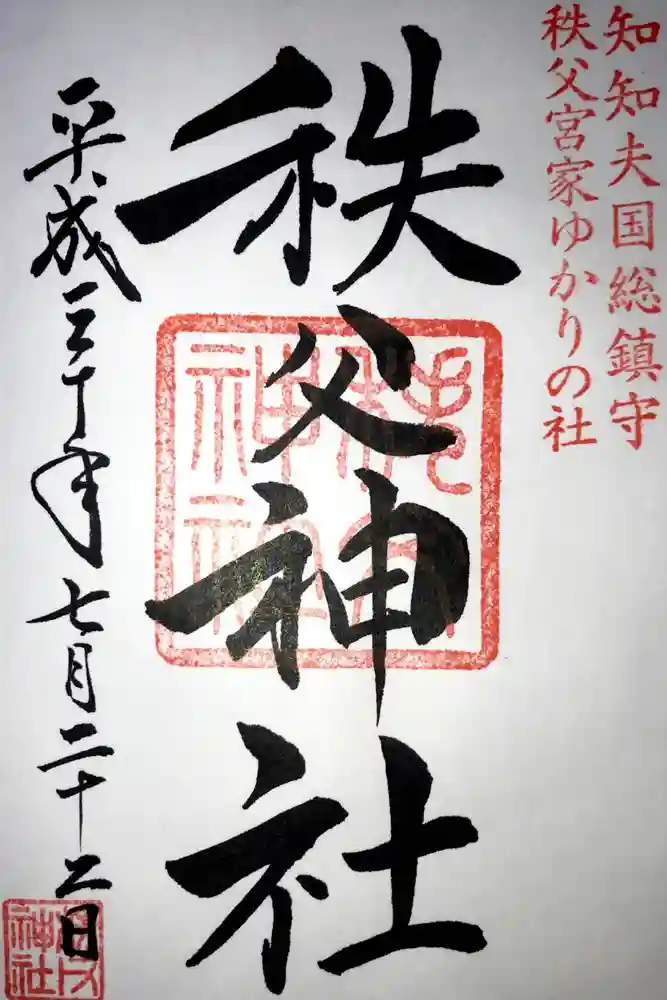 知知夫国総鎮守
秩父宮家ゆかりの社
秩父神社
平成三十年七月二十二日
秩父神社